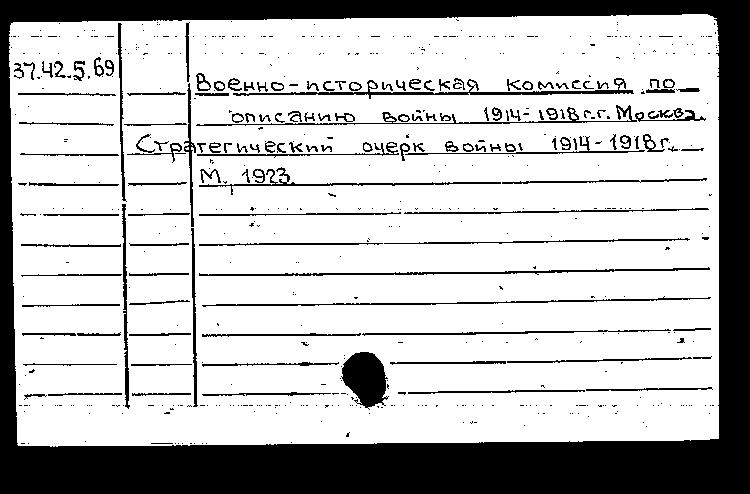 37.42.5.69
Военно-историческая комиссия по
описанию войны 1914-1918г.г. Москва.
Стратегический очерк войны 1914-1918г.
М., 1923.